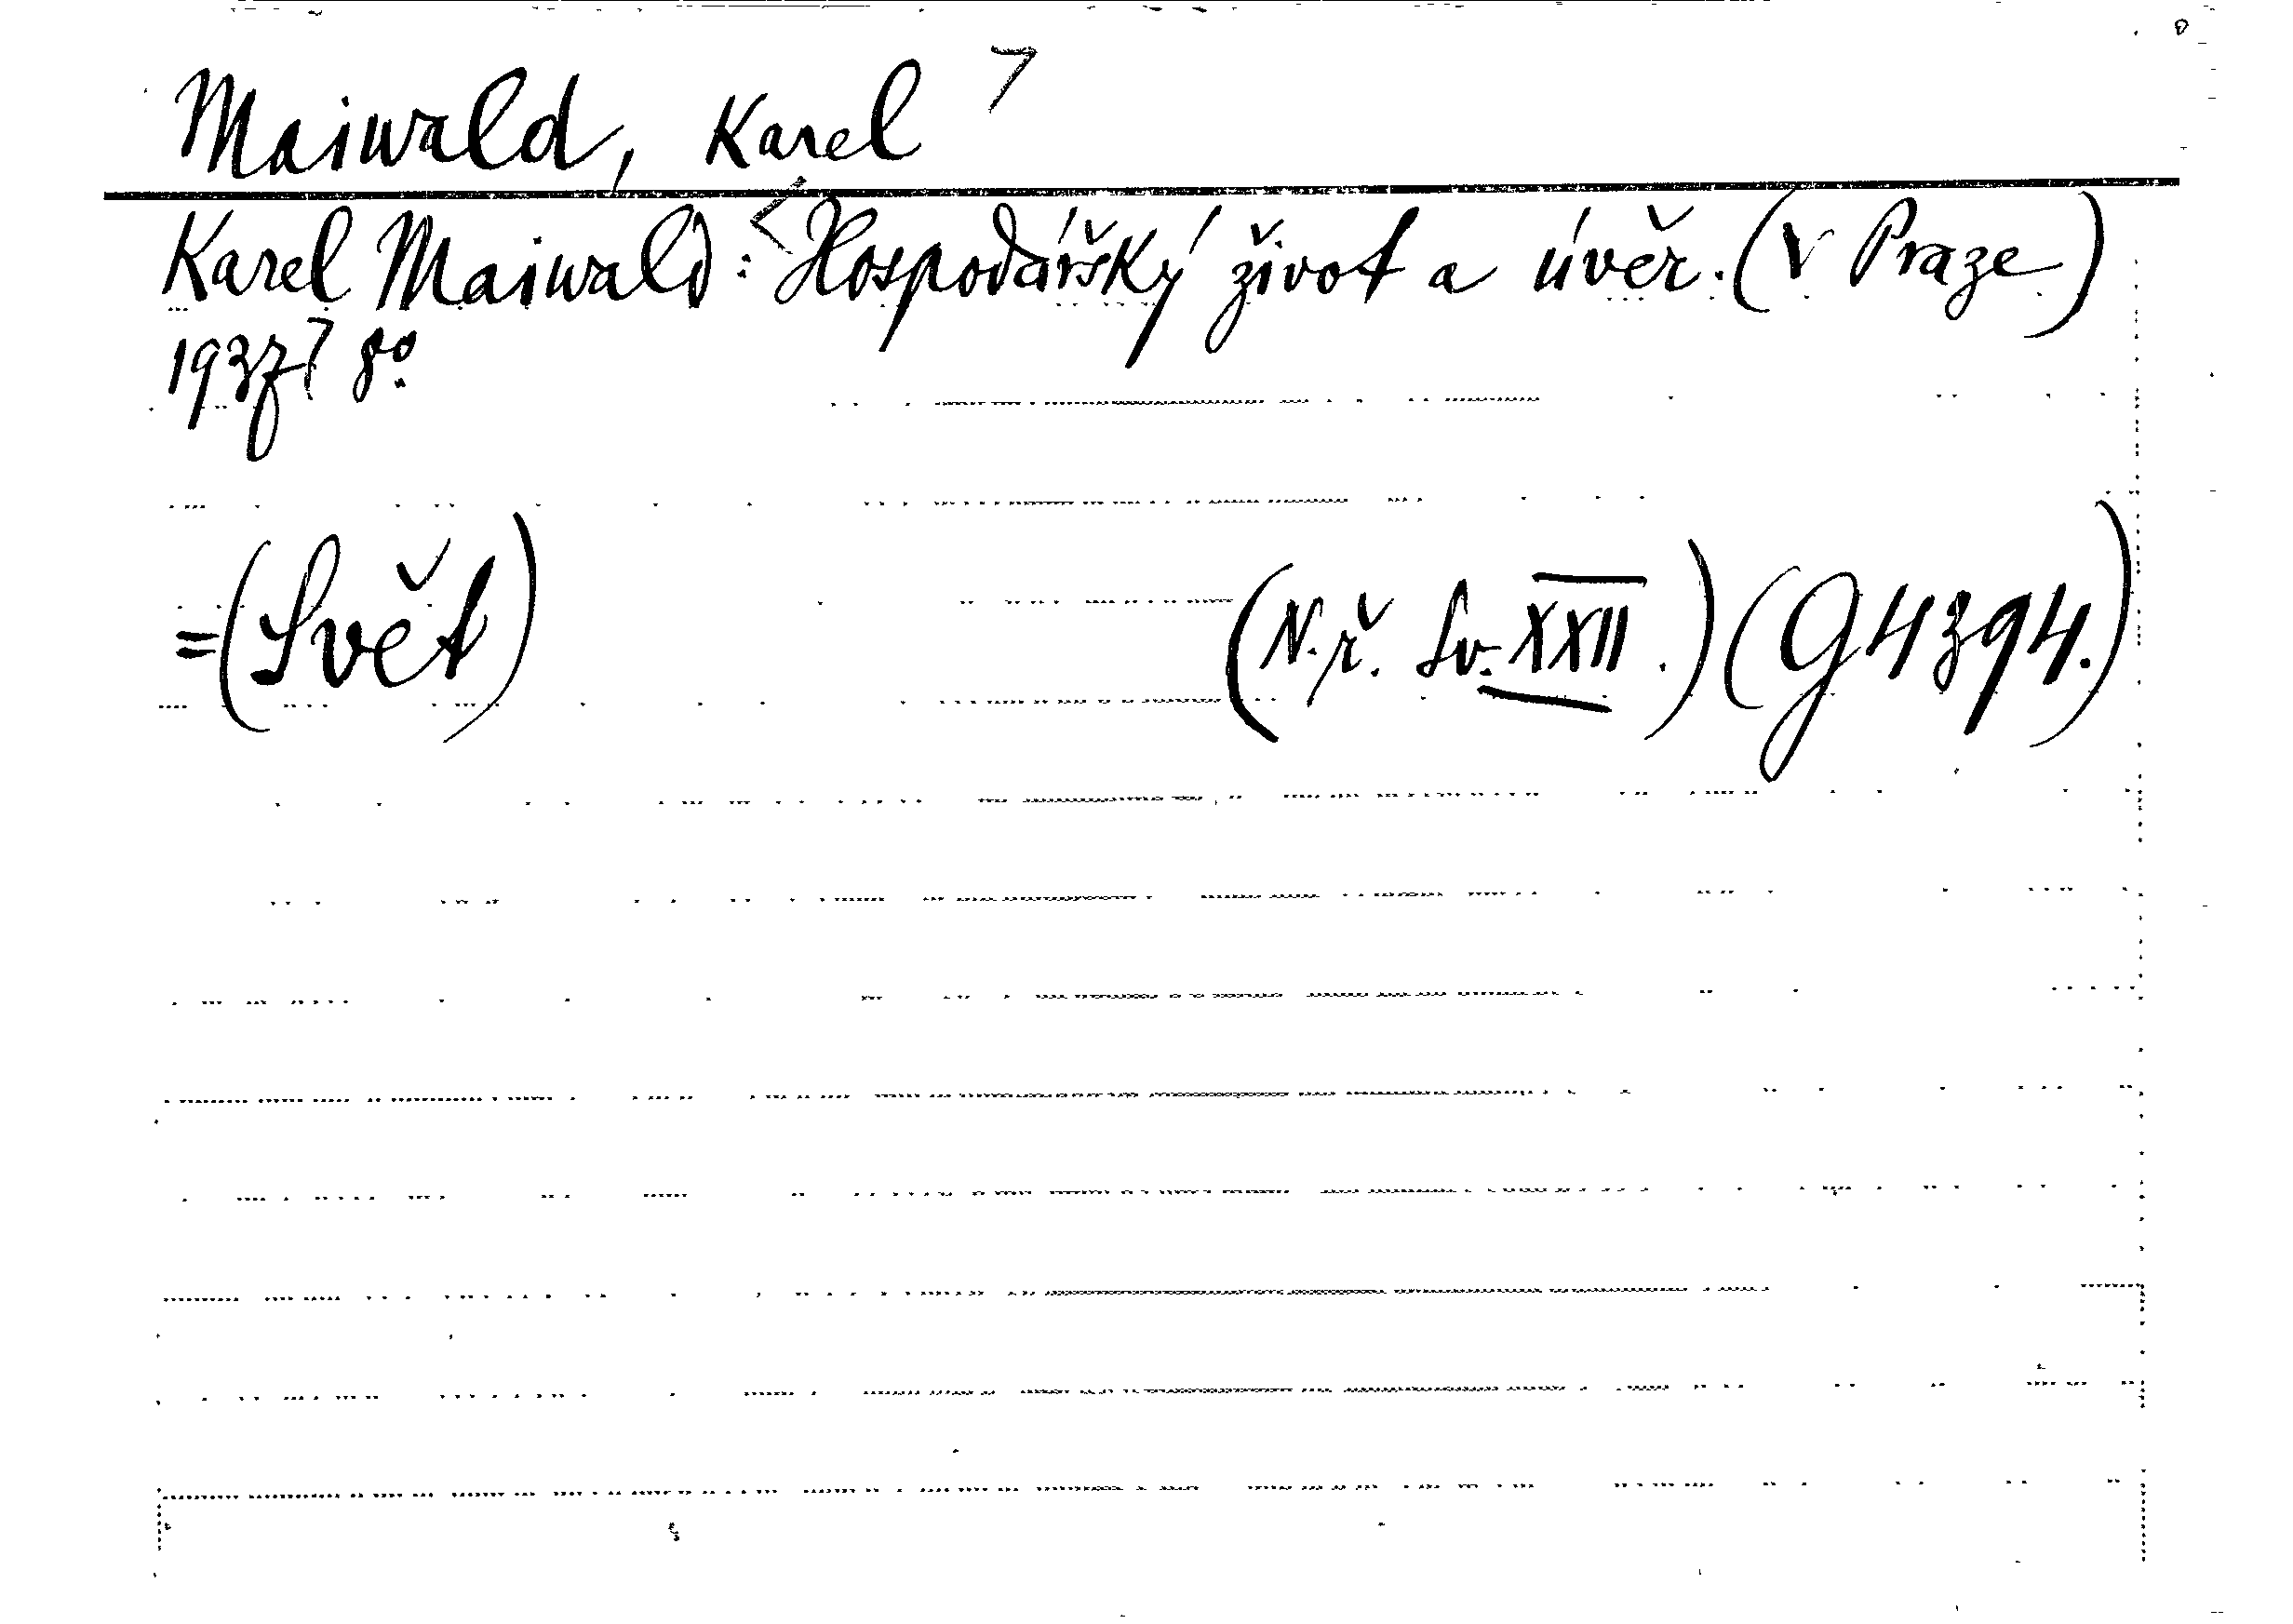 Maiwald, Karel
Karel Maiwald: Hospodářský život a úvěr. (V Praze)
1937 8º.
=(Svět) (N.ř. Sv. XXII.) (G4394.)